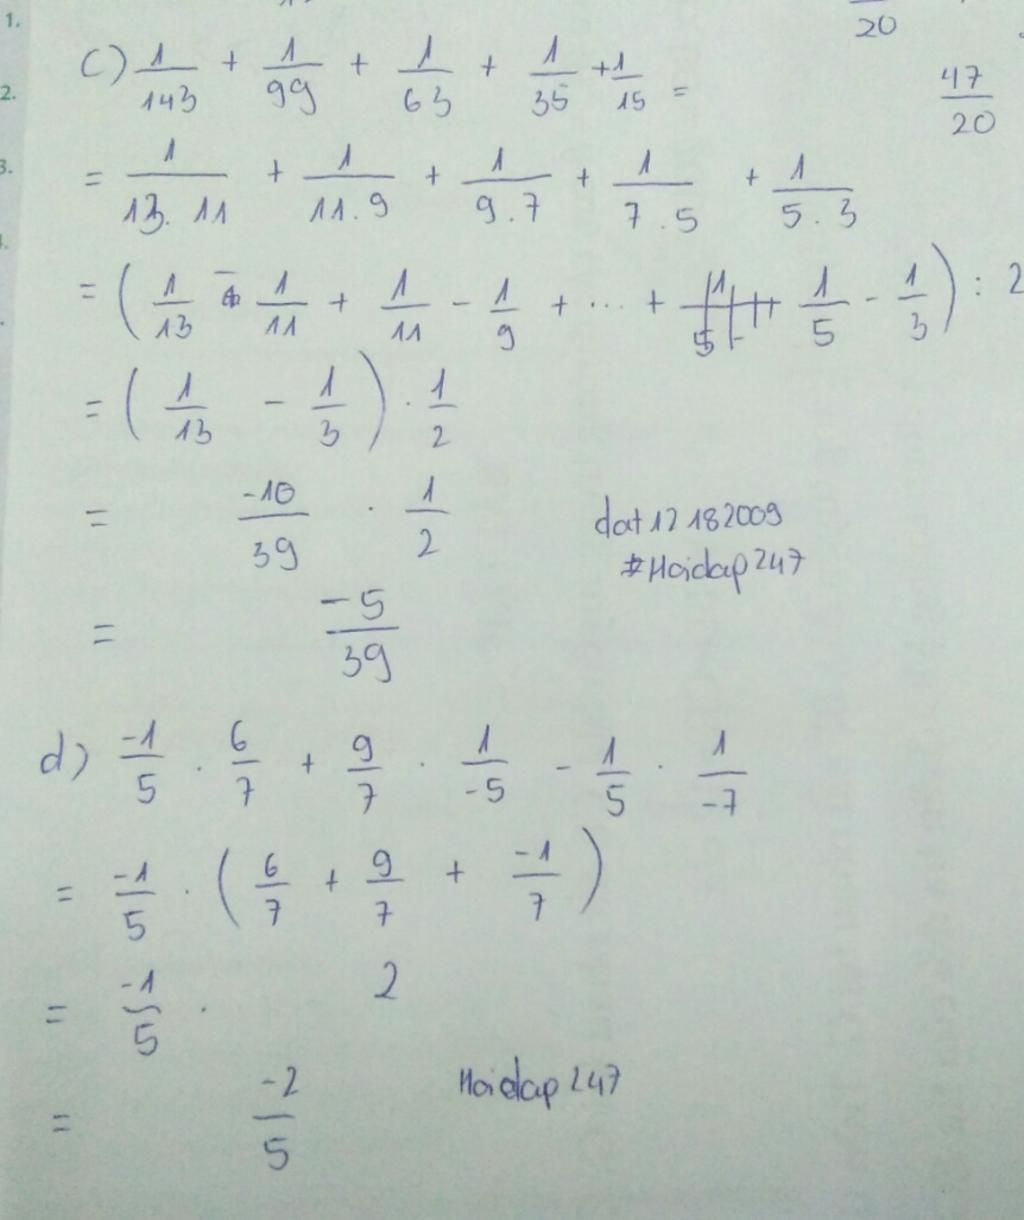 1.
20
c) 1/143 + 1/99 + 1/63 + 1/35 + 1/15 =
2.
47/20
3.
= 1/13.11 + 1/11.9 + 1/9.7 + 1/7.5 + 1/5.3
= (1/13 - 1/11 + 1/11 - 1/9 + ... + 1/5 - 1/3) : 2
= (1/13 - 1/3) . 1/2
= -10/39 . 1/2
dat12182009
#Hoidap247
= -5/39
d) -1/5 . 6/7 + 9/7 . 1/-5 - 1/5 . 1/-7
= -1/5 . (6/7 + 9/7 + -1/7)
= -1/5 . 2
Hoidap247
= -2/5